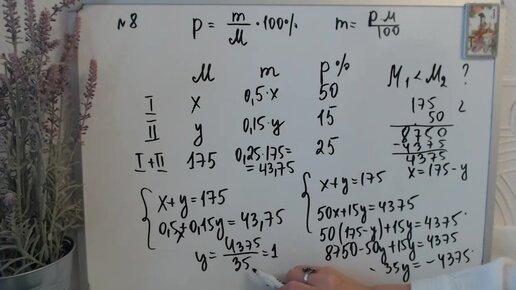 №8 p = m/M · 100% m = p·M/100
M m p% M₁ < M₂ ?
I x 0,5·x 50
II y 0,15·y 15
I+II 175 0,25·175= =43,75 25
175
50
8750
-4375
4375
x = 175 - y
{ x + y = 175
0,5x + 0,15y = 43,75
y = 4375/35 = 1
{ x + y = 175
50x + 15y = 4375
50(175 - y) + 15y = 4375
8750 - 50y + 15y = 4375
- 35y = - 4375